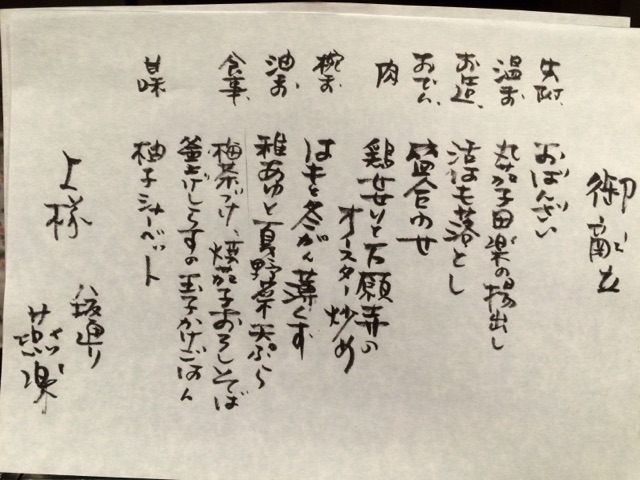 御献立
先附 おばんざい
温物 丸茄子田楽の揚出し
お造 活はも落とし
おでん 盛合わせ
肉 鶏せせりと万願寺の
オースター炒め
椀物 はもと冬がん薄くず
油物 稚あゆと夏野菜天ぷら
食事 梅茶づけ、焼茄子おろしそば
釜上げしらすの玉子かけごはん
甘味 柚子シャーベット
上様
八坂通り